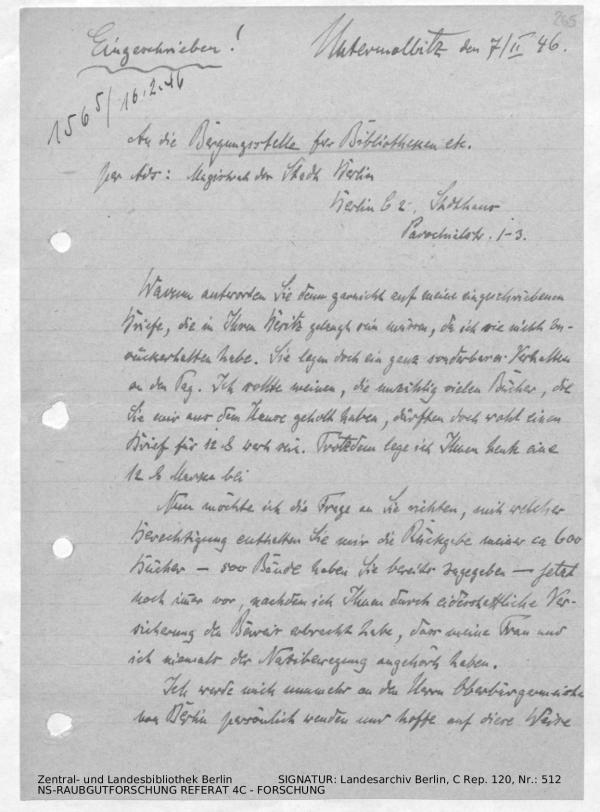 265
Eingeschrieben!
Untermaßbitz den 7/II 46.
1565/16.2.46
An die Bergungsstelle für Bibliotheken etc.
per Adr: Magistrat der Stadt Berlin
Berlin C 2. Stadthaus
Parochialstr. 1-3.
Warum antworten Sie denn garnicht auf meine eingeschriebenen
Briefe, die in Ihren Besitz gelangt sein müssen, da ich sie nicht zu-
rückerhalten habe. Sie legen doch ein ganz sonderbares Verhalten
an den Tag. Ich sollte meinen, die unzählig vielen Bücher, die
Sie mir aus dem Hause geholt haben, dürften doch wohl einen
Brief für 12 ₰ wert sein. Trotzdem lege ich Ihnen heute eine
12 ₰ Marke bei
Nun möchte ich die Frage an Sie richten, mit welcher
Berechtigung enthalten Sie mir die Rückgabe meiner ca 600
Bücher — 500 Bände haben Sie bereits zugegeben — jetzt
noch immer vor, nachdem ich Ihnen durch eidesstattliche Ver-
sicherung den Beweis erbracht habe, dass meine Frau und
ich niemals der Nazibewegung angehört haben.
Ich werde mich nunmehr an den Herrn Oberbürgermeister
von Berlin persönlich wenden und hoffe auf diese Weise
Zentral- und Landesbibliothek Berlin SIGNATUR: Landesarchiv Berlin, C Rep. 120, Nr.: 512
NS-RAUBGUTFORSCHUNG REFERAT 4C - FORSCHUNG